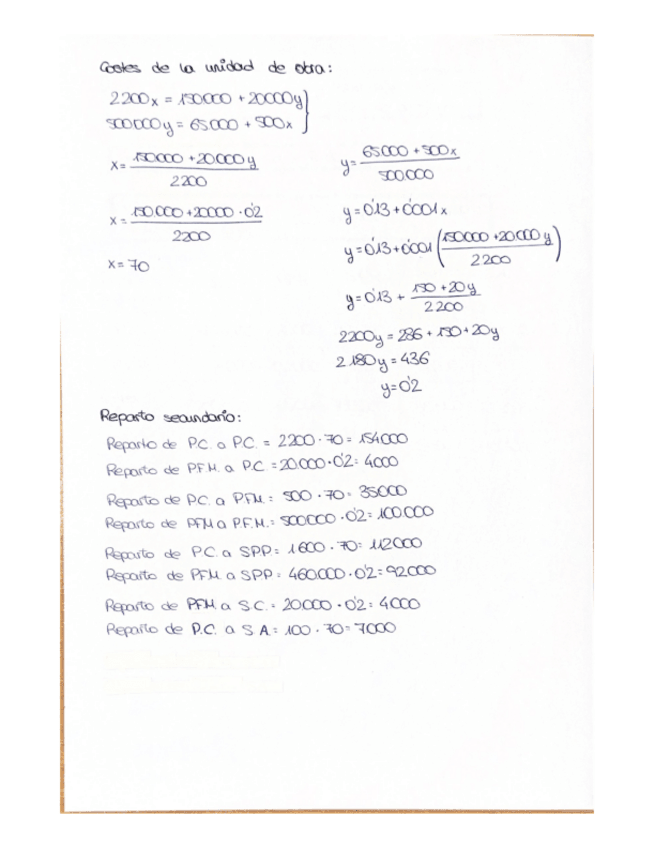 Costes de la unidad de obra:
2200x = 150000 + 20000y
500000y = 65000 + 500x
x = 150000 + 20000y / 2200
x = 150000 + 20000 · 0'2 / 2200
x = 70
y = 65000 + 500x / 500000
y = 0'13 + 0'001x
y = 0'13 + 0'001 (150000 + 20000y / 2200)
y = 0'13 + 150 + 20y / 2200
2200y = 286 + 150 + 20y
2.180y = 436
y = 0'2
Reparto secundario:
Reparto de P.C. a P.C. = 2200 · 70 = 154000
Reparto de P.F.M. a P.C = 20.000 · 0'2 = 4000
Reparto de P.C. a PFM = 500 · 70 = 35000
Reparto de PFM a P.F.M. = 500000 · 0'2 = 100.000
Reparto de P.C. a SPP = 1600 · 70 = 112000
Reparto de PFM a SPP = 460.000 · 0'2 = 92000
Reparto de PFM a S.C. = 20000 · 0'2 = 4000
Reparto de P.C. a S A = 100 · 70 = 7000